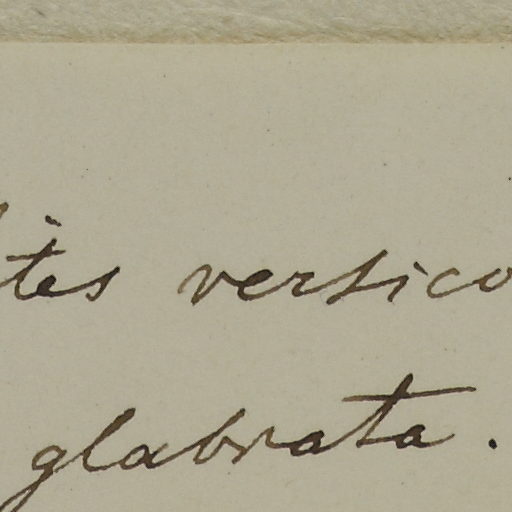 tes versico
glabrata.